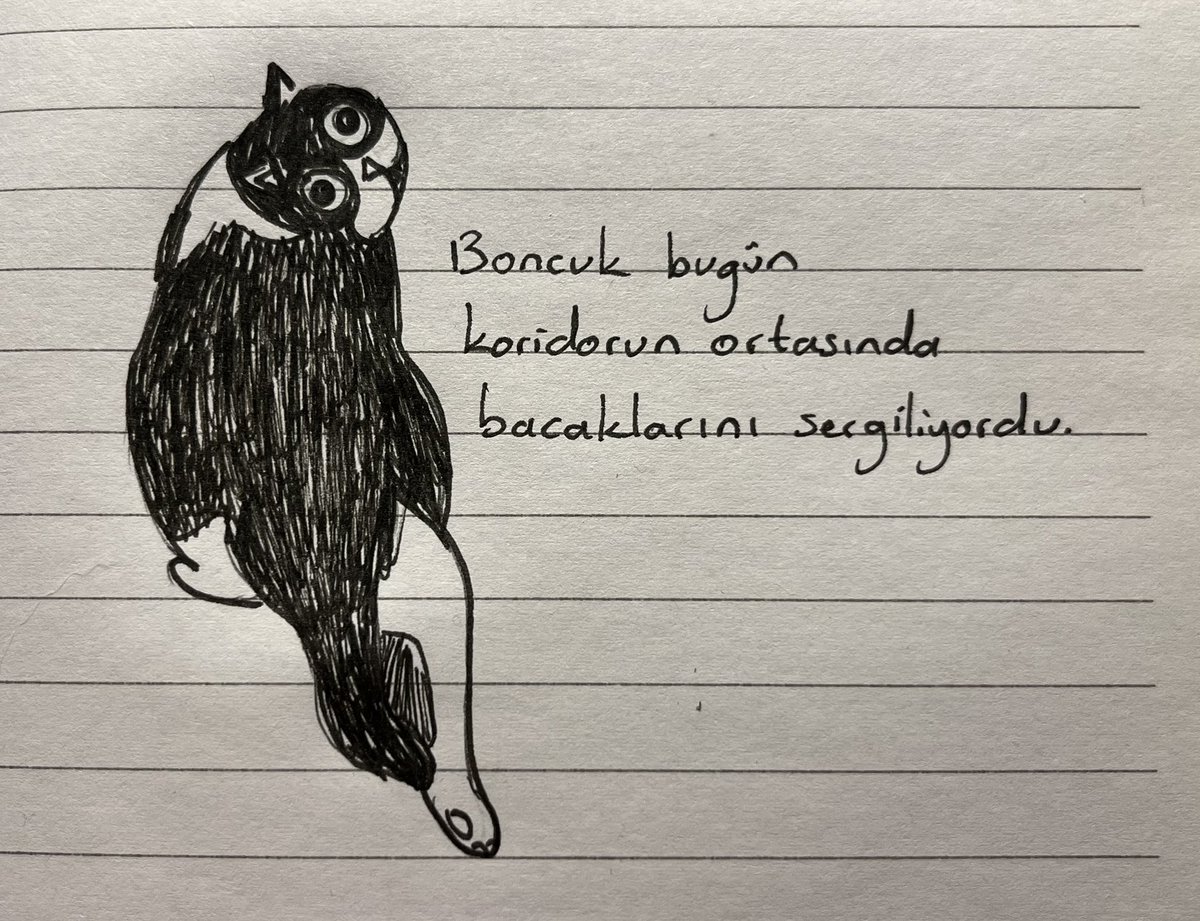 Boncuk bugün
koridorun ortasında
bacaklarını sergiliyordu.